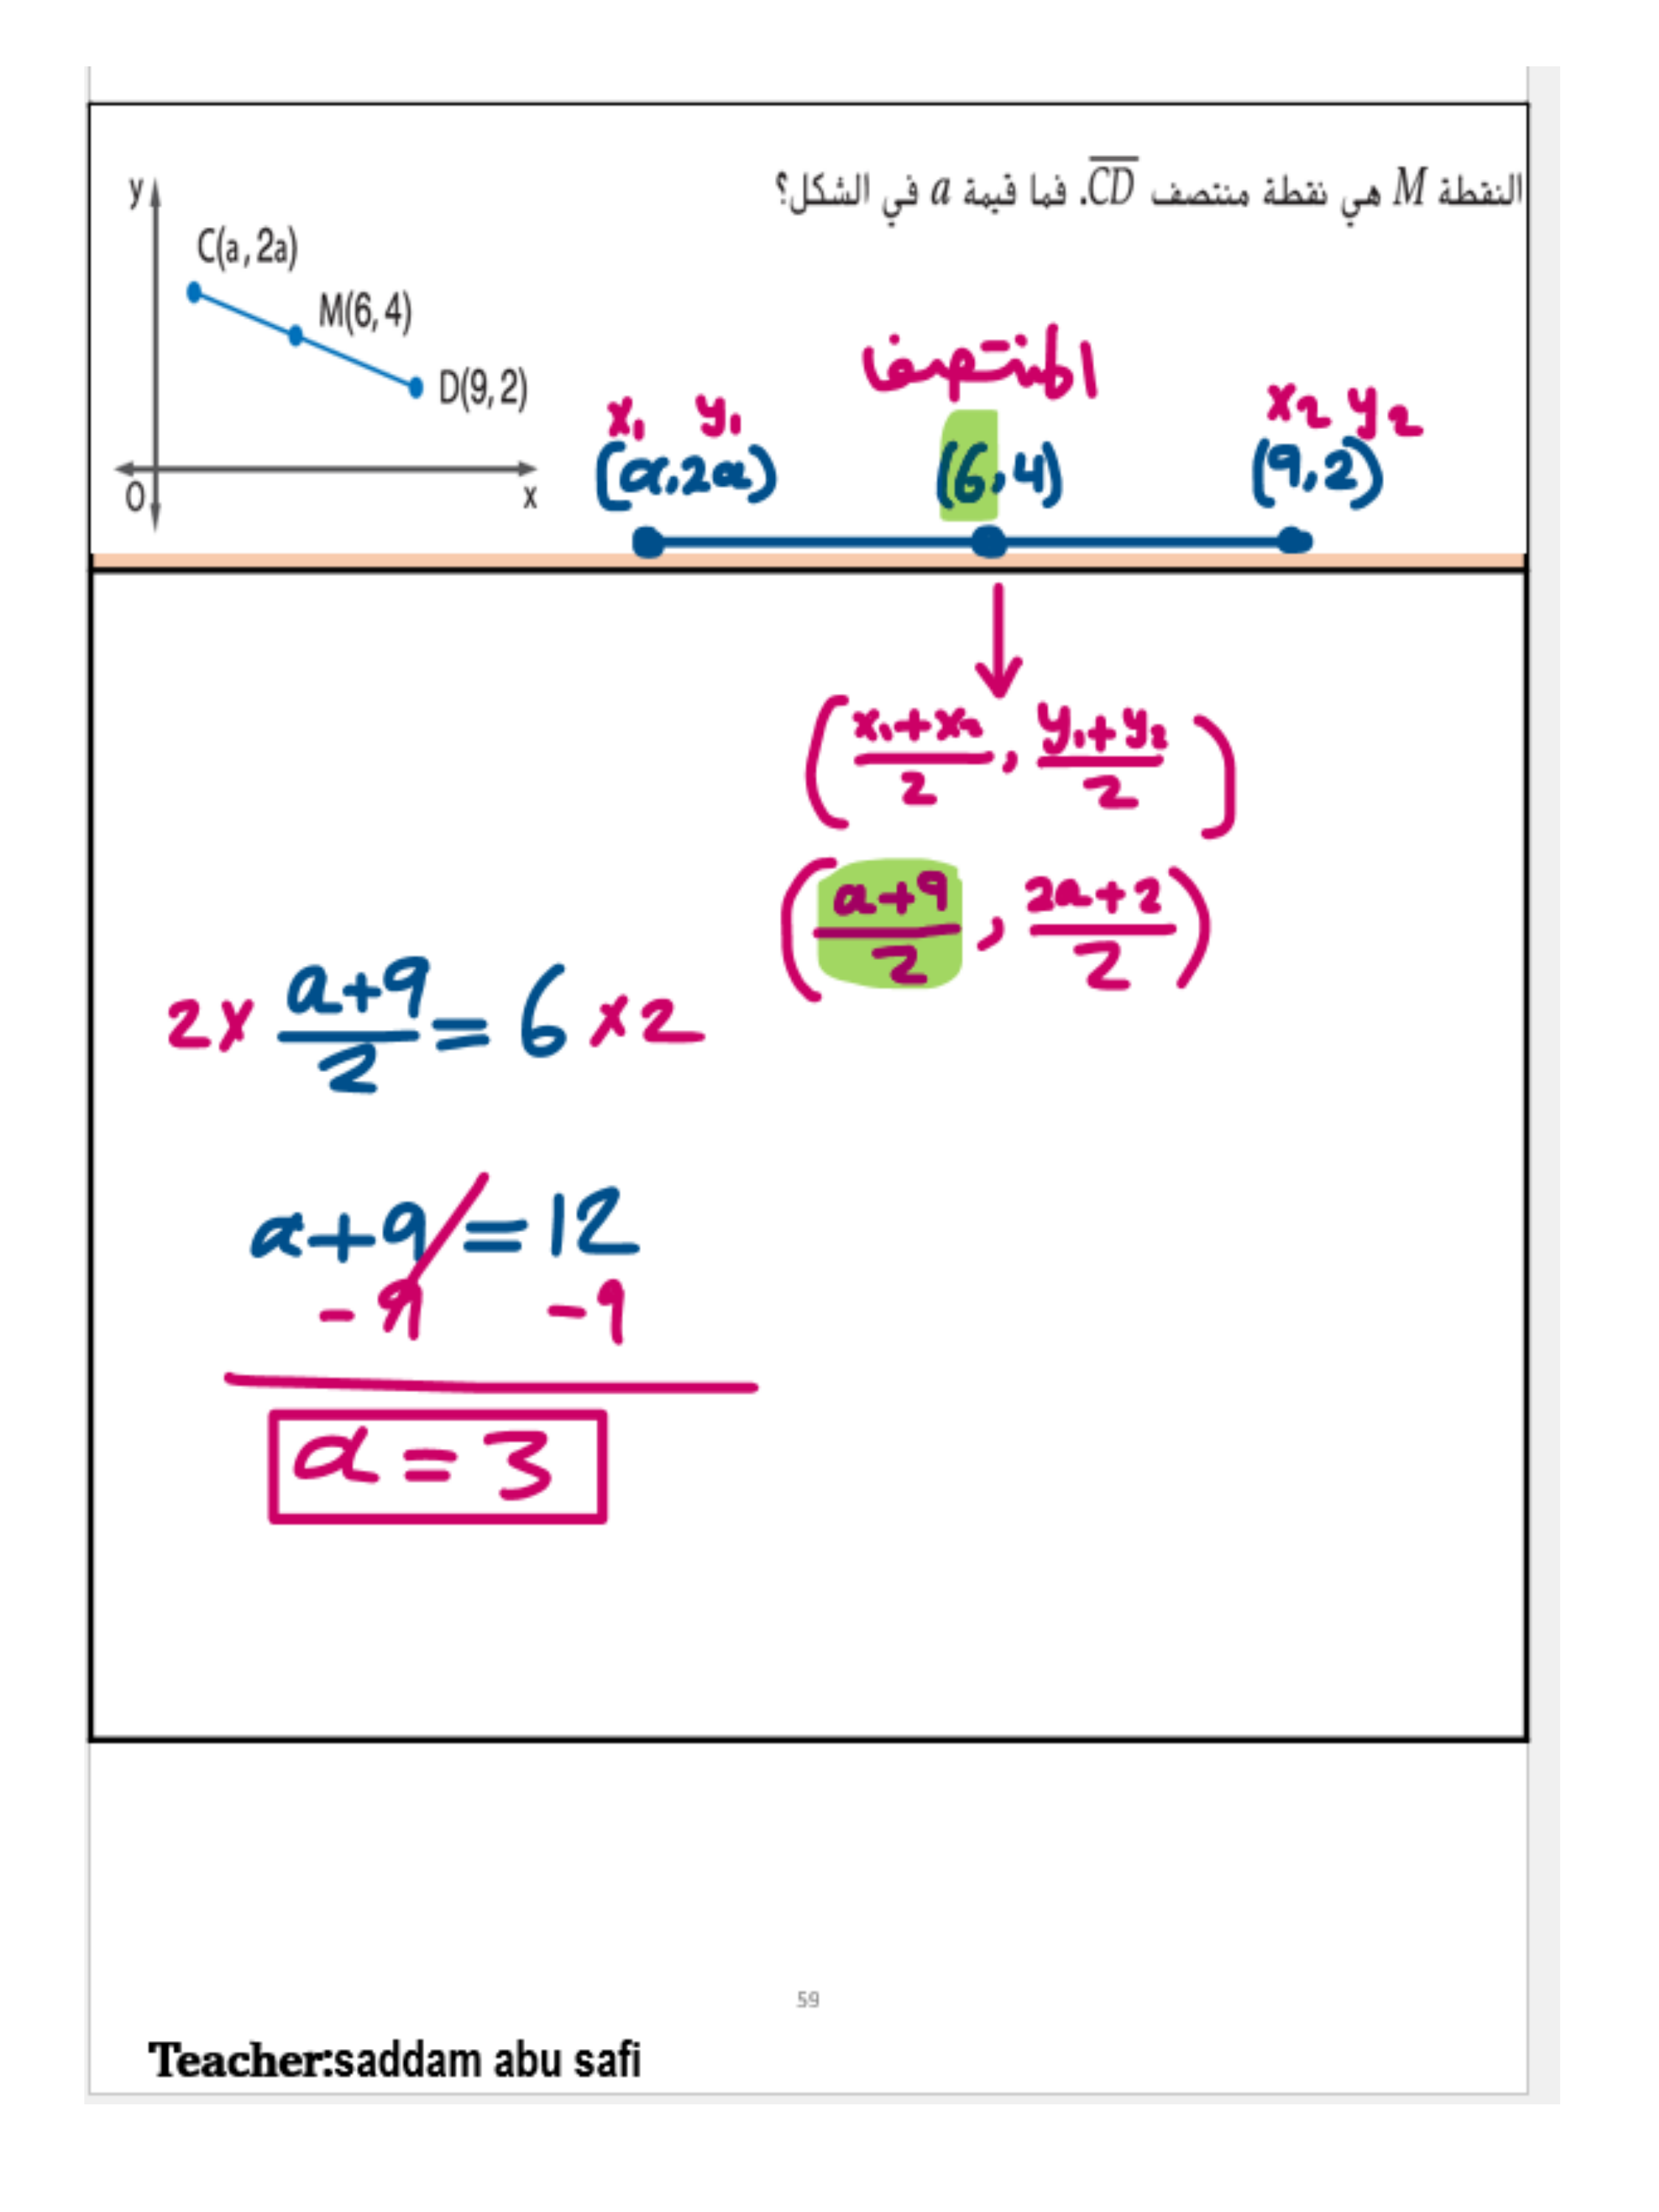 النقطة M هي نقطة منتصف CD. فما قيمة a في الشكل؟
y
C(a, 2a)
M(6, 4)
D(9, 2)
O
x
المنتصف
x₁ y₁
x₂ y₂
(a, 2a)
(6, 4)
(9, 2)
(x₁+x₂/2, y₁+y₂/2)
(a+9/2, 2a+2/2)
2× a+9/2 = 6 ×2
a+9=12
-9 -9
a=3
59
Teacher:saddam abu safi